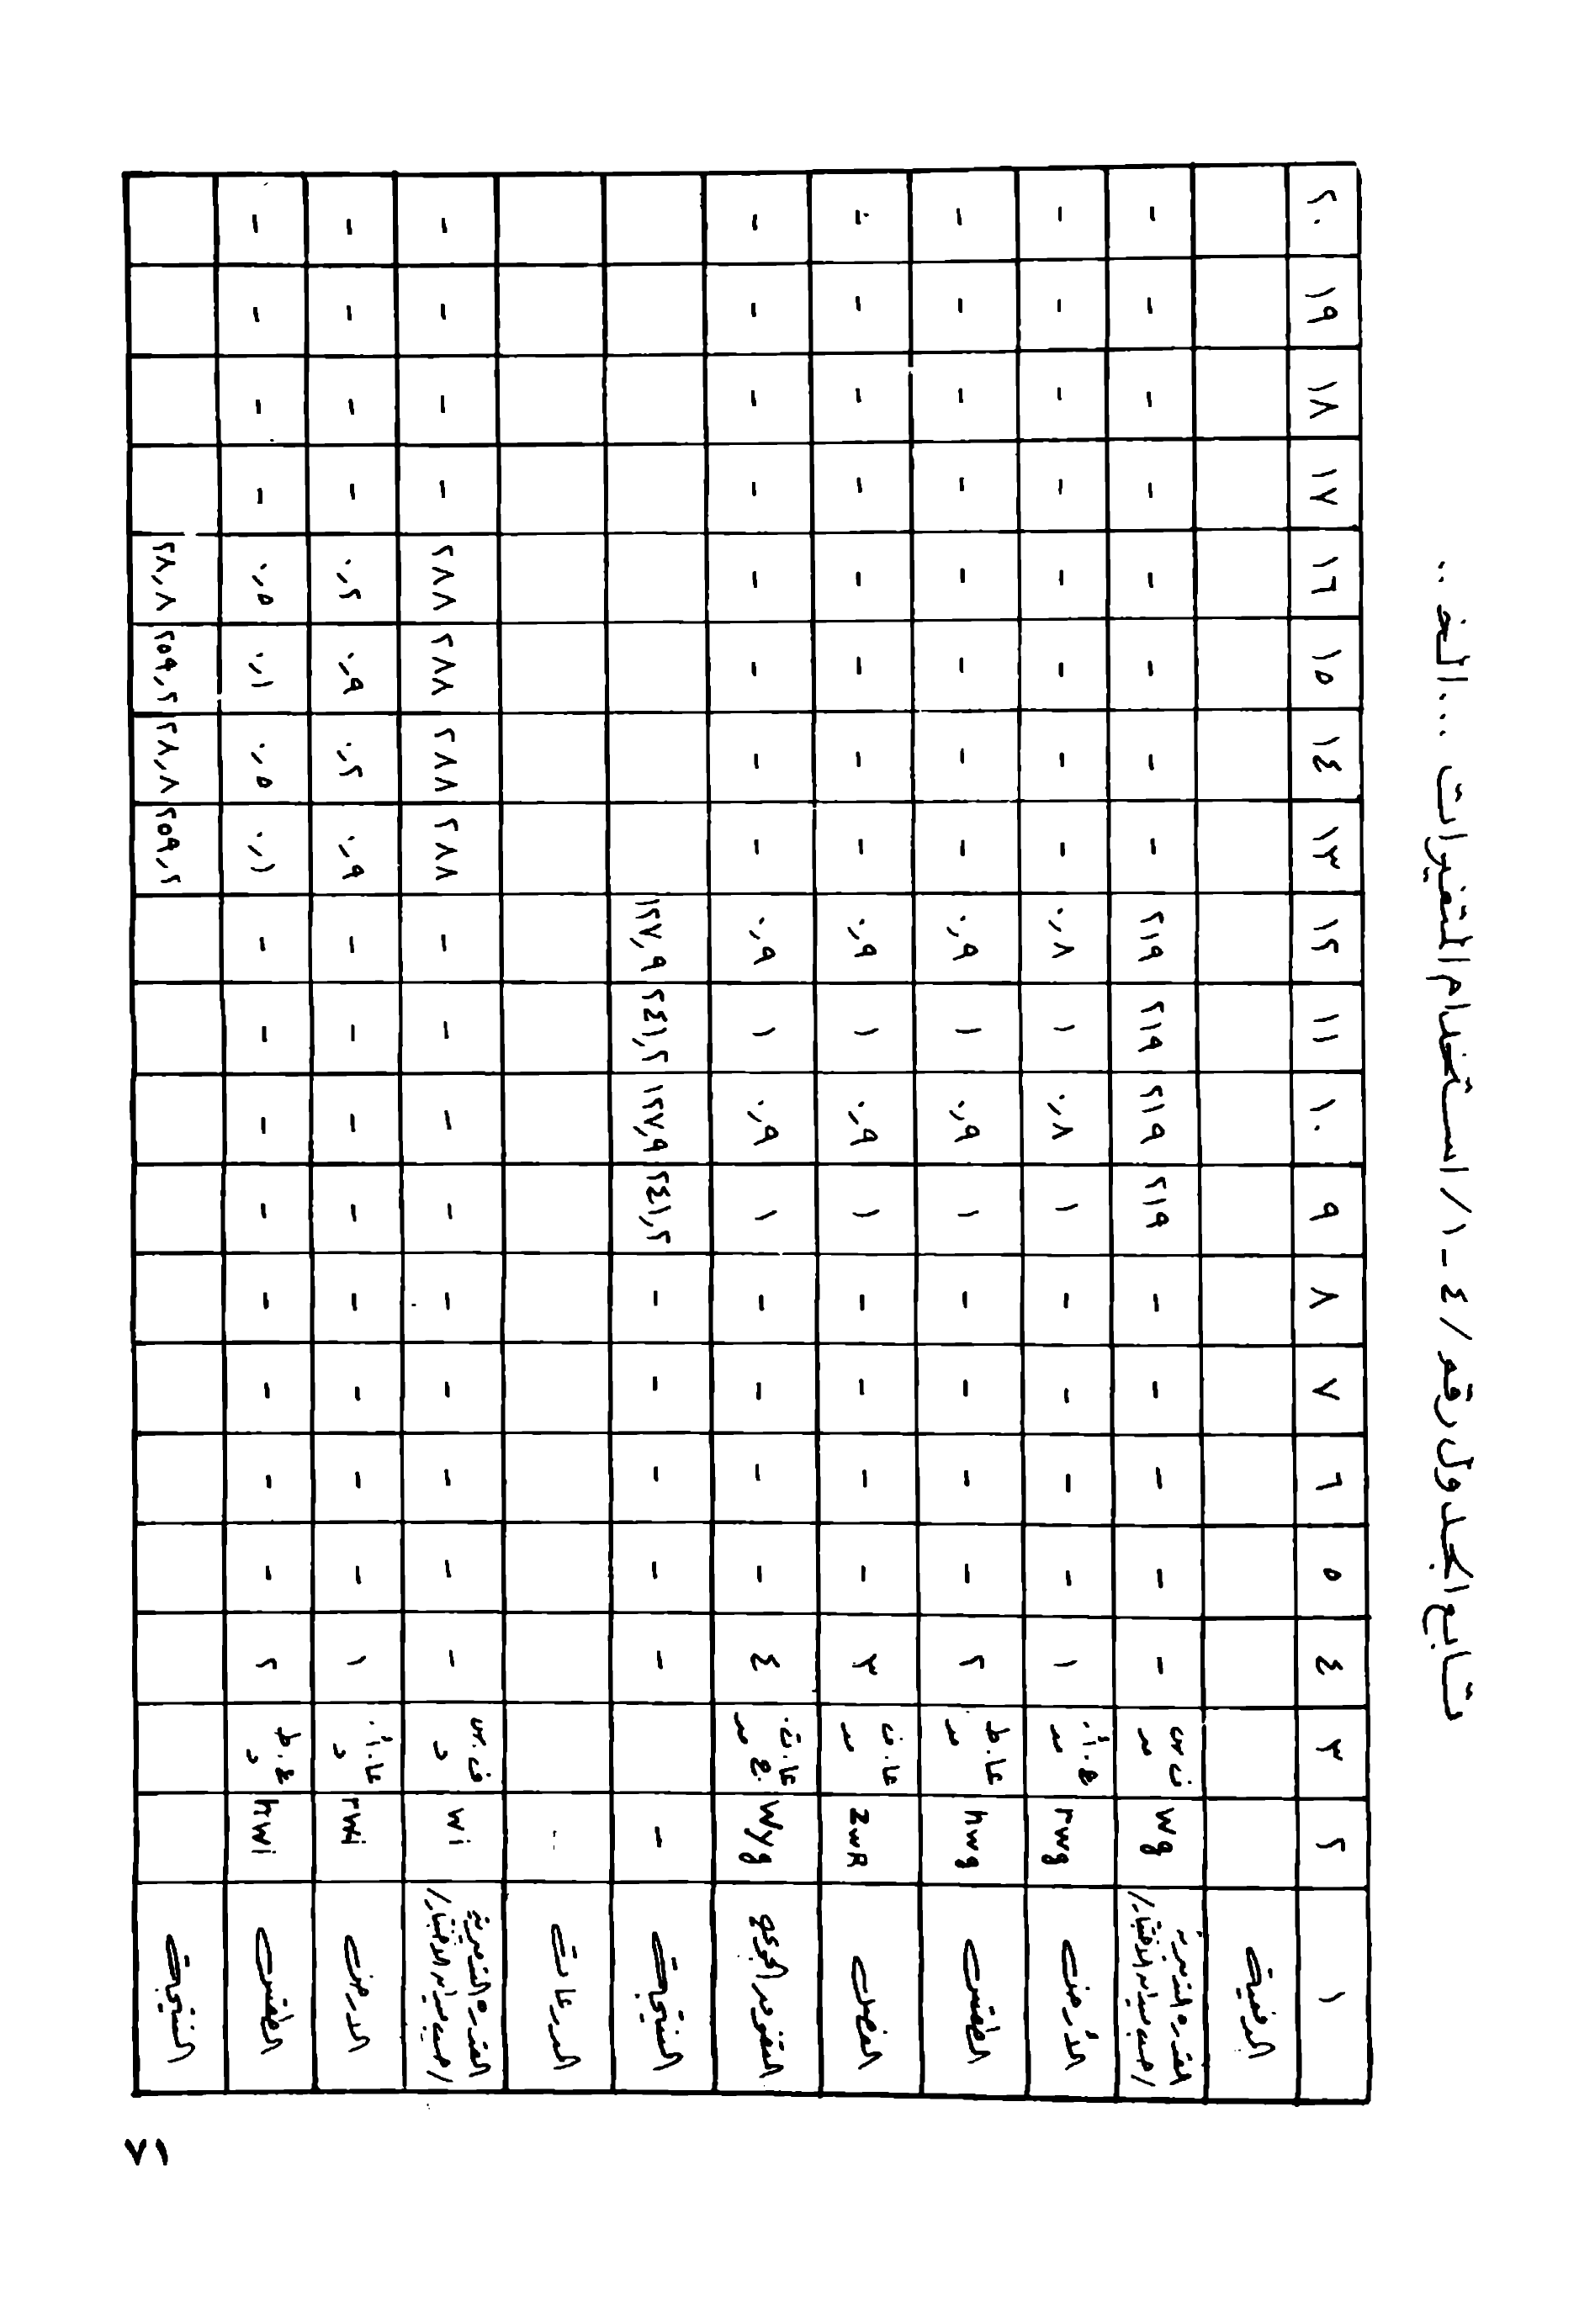 تابع الجدول رقم /٤-١/ استخدام المتغيرات ... الخ ..
١ ٢ ٣ ٤ ٥ ٦ ٧ ٨ ٩ ١٠ ١١ ١٢ ١٣ ١٤ ١٥ ١٦ ١٧ ١٨ ١٩ ٢٠
Wg - - - - - ٢١٩ ٢١٩ ٢١٩ ٢١٩ - - - - - - - -
الأرض rwg ١ - - - - ١ ٠,٨ ١ ٠,٨ - - - - - - - -
الطقس hwg عا.ط ٢ - - - - ١ ٠,٩ ١ ٠,٩ - - - - - - - -
الفصل zwg ٣ - - - - ١ ٠,٩ ١ ٠,٩ - - - - - - - -
التفوق الجوي Wyg ٤ - - - - ١ ٠,٩ ١ ٠,٩ - - - - - - - -
النتيجة - - - - - - ٢٤١,٢ ١٢٧,٩ ٢٤١,٢ ١٢٧,٩
المدرعات
القدرة النيرانية /حسب ميدان الاختبار/ wi ف.س د - - - - - - - - - ٢٨٨ ٢٨٨ ٢٨٨ ٢٨٨ - - - -
الارض rwi ١ - - - - - - - - ٠,٩ ٠,٢ ٠,٩ ٠,٢ - - - -
الطقس hwi ع.ط د ٢ - - - - - - - - ٠,١ ٠,٥ ٠,١ ٠,٥ - - - -
النتيجة ٢٥٩,٢ ٢٨,٨ ٢٥٩,٢ ٢٨,٨
٧١